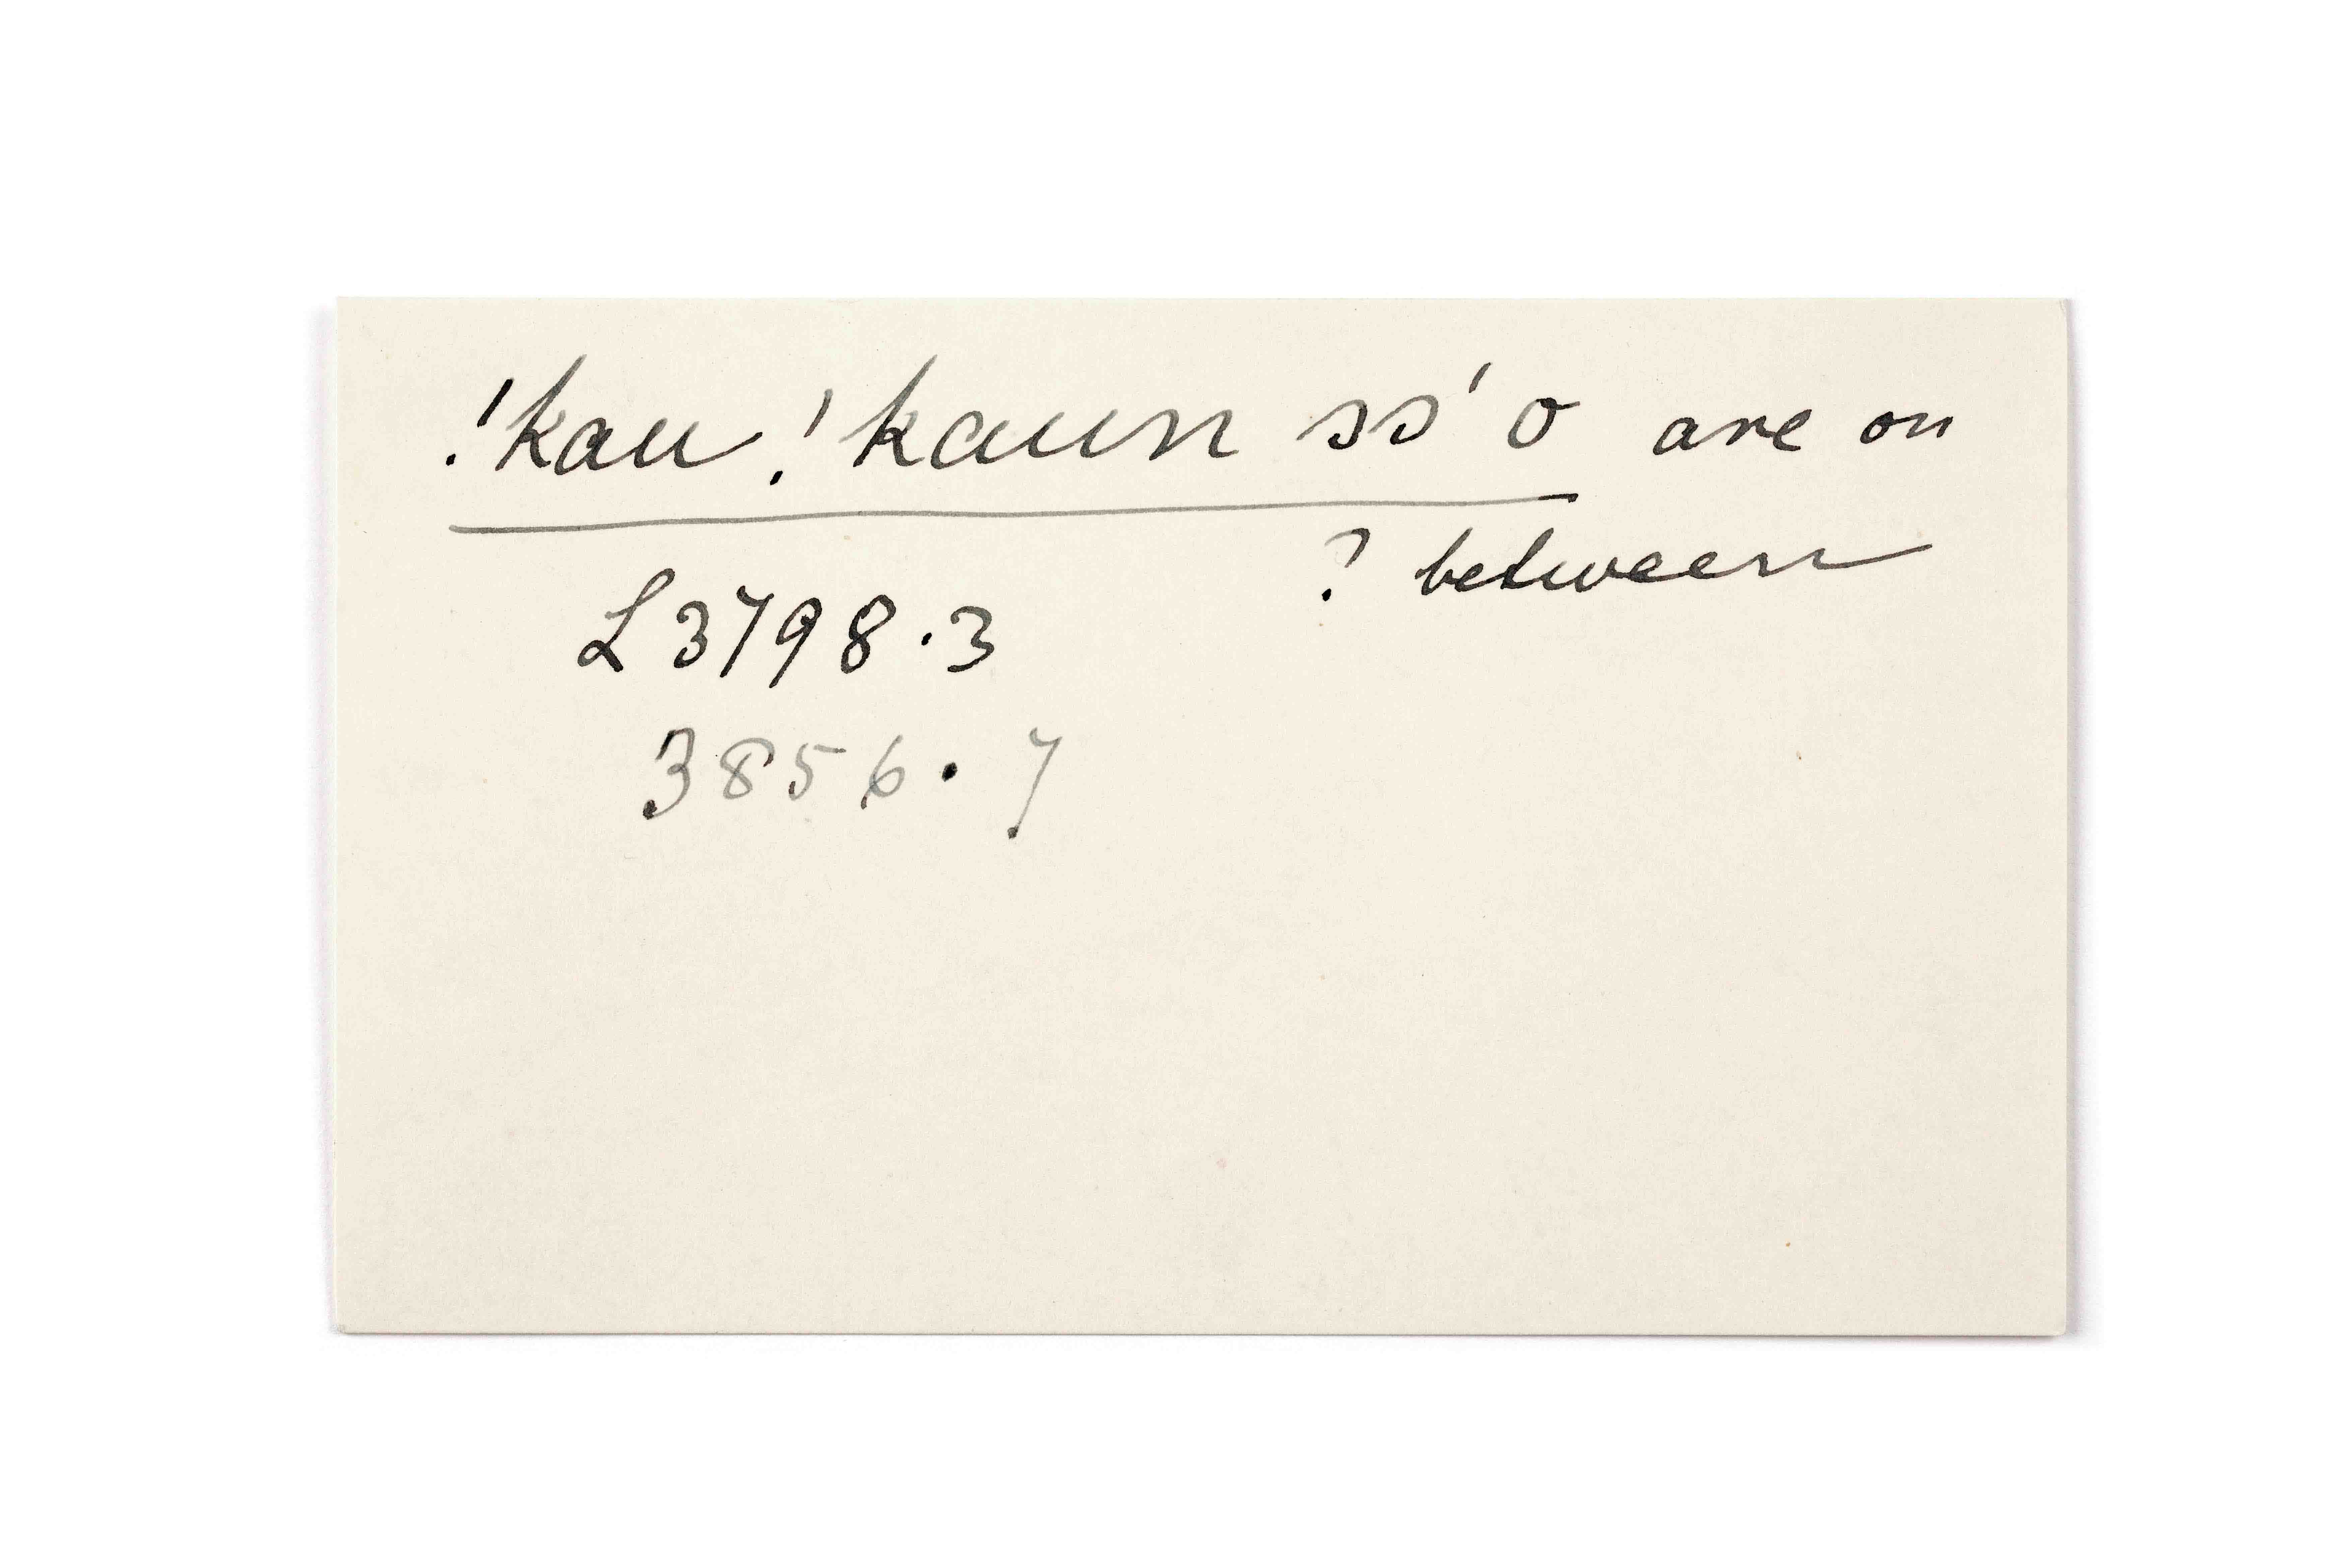 !kau !kaun ss'o are on
? between
L 3798.3
3856.7